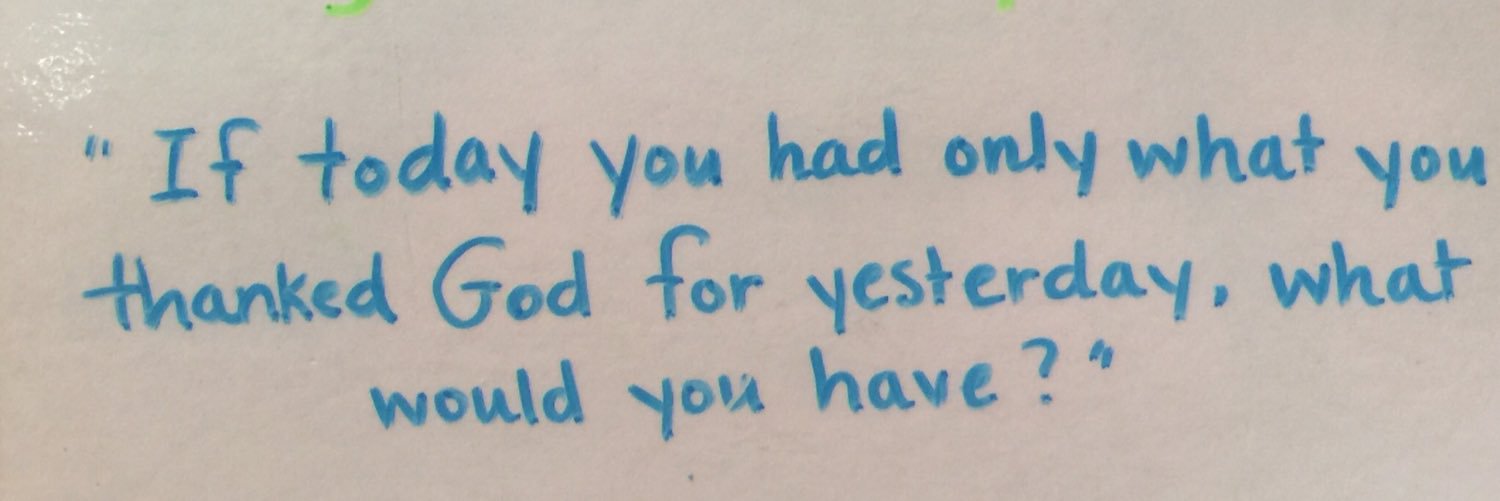 "If today you had only what you
thanked God for yesterday, what
would you have?"